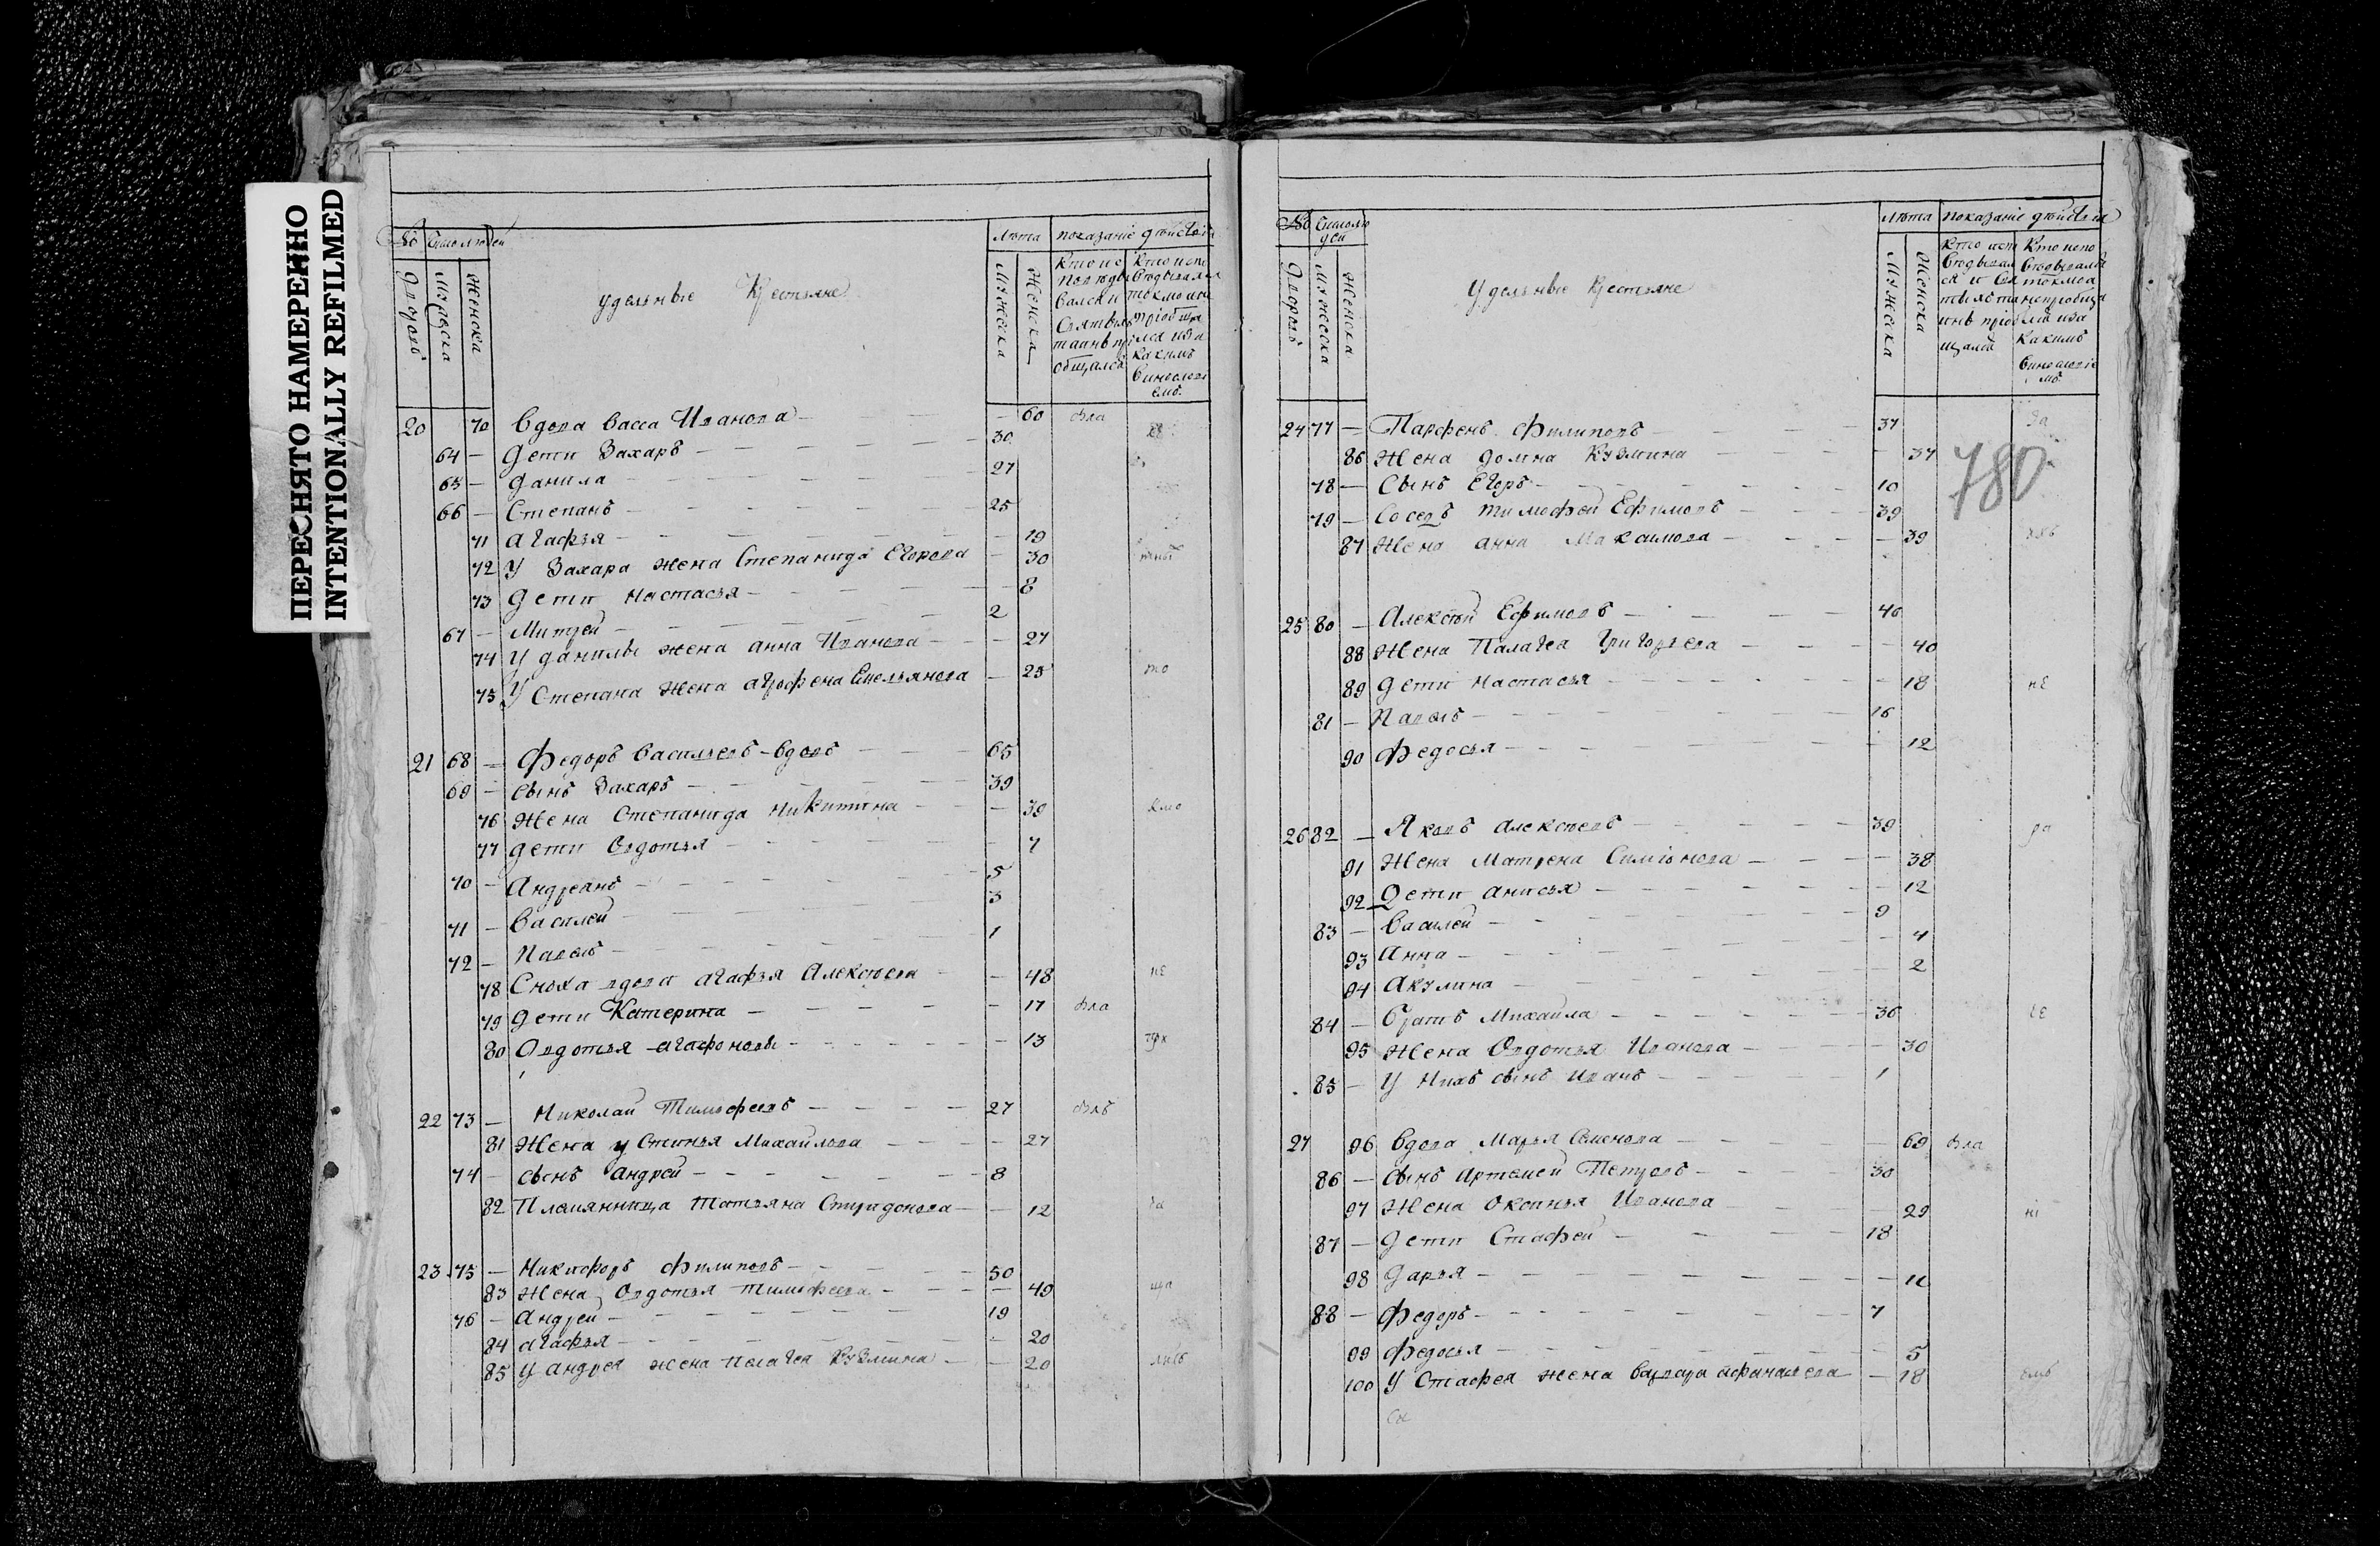 ПЕРЕСНЯТО НАМЕРЕННО
INTENTIONALLY REFILMED
№ Число людей удельные Крестьяне Лета показаніе действа
Дворовъ мужеска женска мужеска женска
20 70 вдова васса Иванова 60 была
64 дети Захаръ 30
65 данила 27
66 Степанъ 25
71 агафья 19
72 У Захара жена Степанида Егорова 30
73 дети настасья 8
67 Митрей 2
74 У данилы жена анна Иванова 27
75 У Степана жена агрофена Емельянова 25 то
21 68 Федоръ васильевъ вдовъ 65
69 сынъ Захаръ 39
76 жена Степанида никитина 39 кмо
77 дети Овдотья 7
70 Андреанъ 5
71 василей 3
72 Павелъ 1
78 Сноха вдова агафья Алексеева 48 не
79 дети Катерина 17 была
80 Овдотья агафоновы 13
22 73 Николай Тимофеевъ 27 былъ
81 Жена устинья Михайлова 27
74 сынъ андрей 8
82 Племянница Татьяна Спиридонова 12
23 75 Никифоръ филиповъ 50
83 жена Овдотья тимофеева 49 ща
76 андрей 19
84 агафья 20
85 У андрея жена пелагея кузмина 20
№ Число людей удельные Крестьяне Лета показаніе действа
Дворовъ мужеска женска мужеска женска
24 77 Парфенъ филиповъ 37 за
780
86 Жена домна Кузмина 37
78 сынъ Егоръ 10
79 Соседъ тимофей Ефимовъ 39
87 жена анна Максимова 39
25 80 Алексей Ефимовъ 40
88 Жена Палагея Григорьева 40
89 дети настасья 18 не
81 Павелъ 16
90 федосья 12
26 82 Яковъ алексеевъ 39 ра
91 Жена Матрена Симіонова 38
92 Дети анисья 12
83 василей 9
93 анна 4
94 акулина 2
84 братъ Михаила 36
95 жена Овдотья Иванова 30
85 У нихъ сынъ иванъ 1
27 96 вдова Марья Семенова 69 была
86 сынъ артемей Петровъ 30
97 жена Оксинья Иванова 29 ні
87 дети Стафей 18
98 дарья 11
88 федоръ 7
99 федосья 5
100 У Стафея жена варвара афанасьева 18 емъ